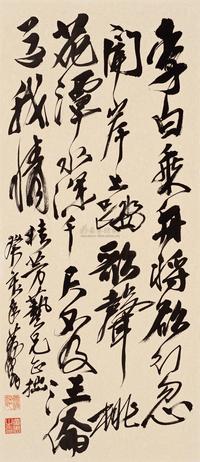 李白乘舟将欲行忽
闻岸上踏歌声桃
花潭水深千尺不及汪伦
送我情
桂芳艺兄正拙
癸未年